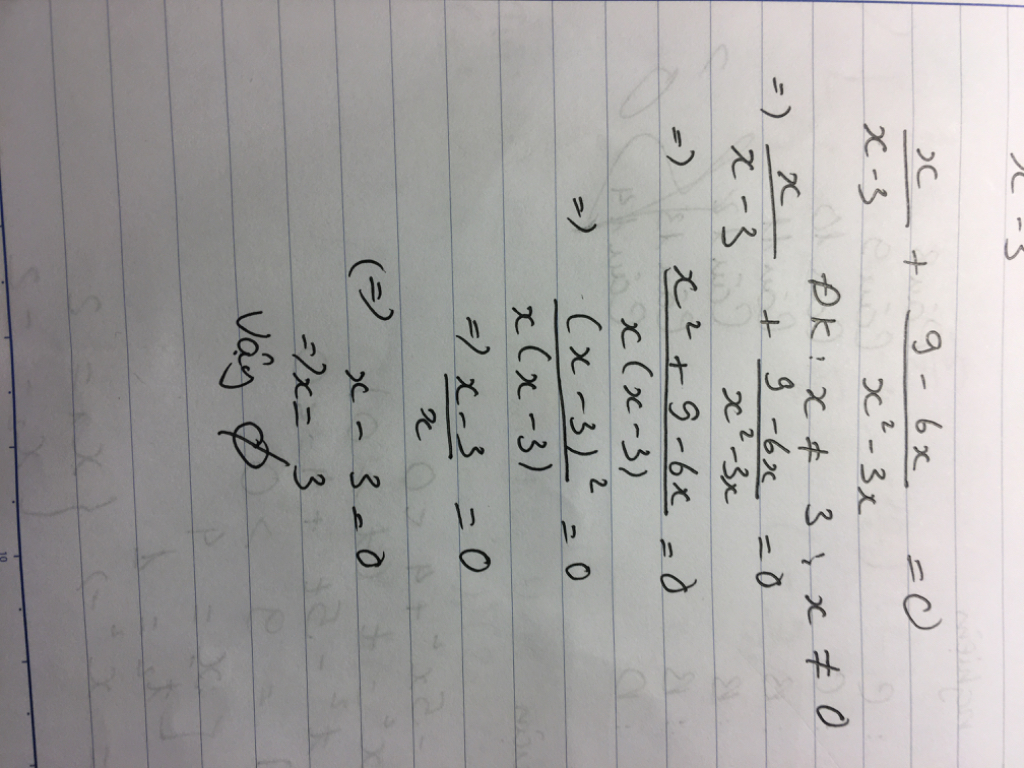 x - 3
x/(x - 3) + (9 - 6x)/(x² - 3x) = 0
ĐK: x ≠ 3; x ≠ 0
=) x/(x - 3) + (9 - 6x)/(x² - 3x) = 0
=) (x² + 9 - 6x)/(x(x - 3)) = 0
=) (x - 3)²/(x(x - 3)) = 0
=) (x - 3)/x = 0
(=) x - 3 = 0
=) x = 3
Vậy ∅